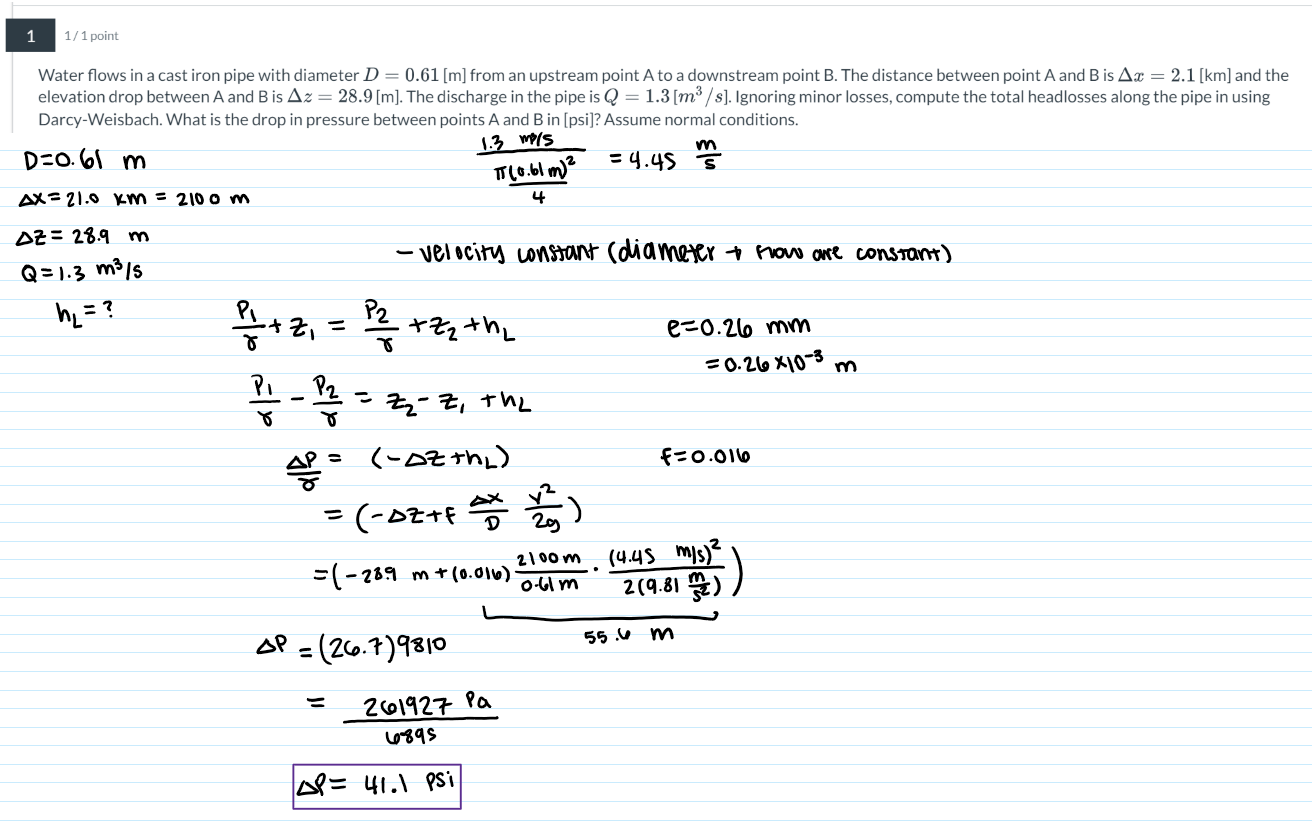 1 1 / 1 point
Water flows in a cast iron pipe with diameter D = 0.61 [m] from an upstream point A to a downstream point B. The distance between point A and B is Δx = 2.1 [km] and the
elevation drop between A and B is Δz = 28.9 [m]. The discharge in the pipe is Q = 1.3 [m³/s]. Ignoring minor losses, compute the total headlosses along the pipe in using
Darcy-Weisbach. What is the drop in pressure between points A and B in [psi]? Assume normal conditions.
D=0.61 m
1.3 m³/s / (π(0.61 m)²/4) = 4.45 m/s
Δx = 21.0 km = 2100 m
Δz = 28.9 m
- velocity constant (diameter + flow are constant)
Q = 1.3 m³/s
hL = ?
P1/γ + z1 = P2/γ + z2 + hL
e=0.26 mm
= 0.26 x10⁻³ m
P1/γ - P2/γ = z2 - z1 + hL
ΔP/γ = (-Δz + hL)
f=0.016
= (-Δz + f Δx/D v²/2g)
= (-28.9 m + (0.016) 2100 m/0.61 m · (4.45 m/s)²/2(9.81 m/s²))
55.6 m
ΔP = (26.7)9810
= 261927 Pa
6895
ΔP = 41.1 psi